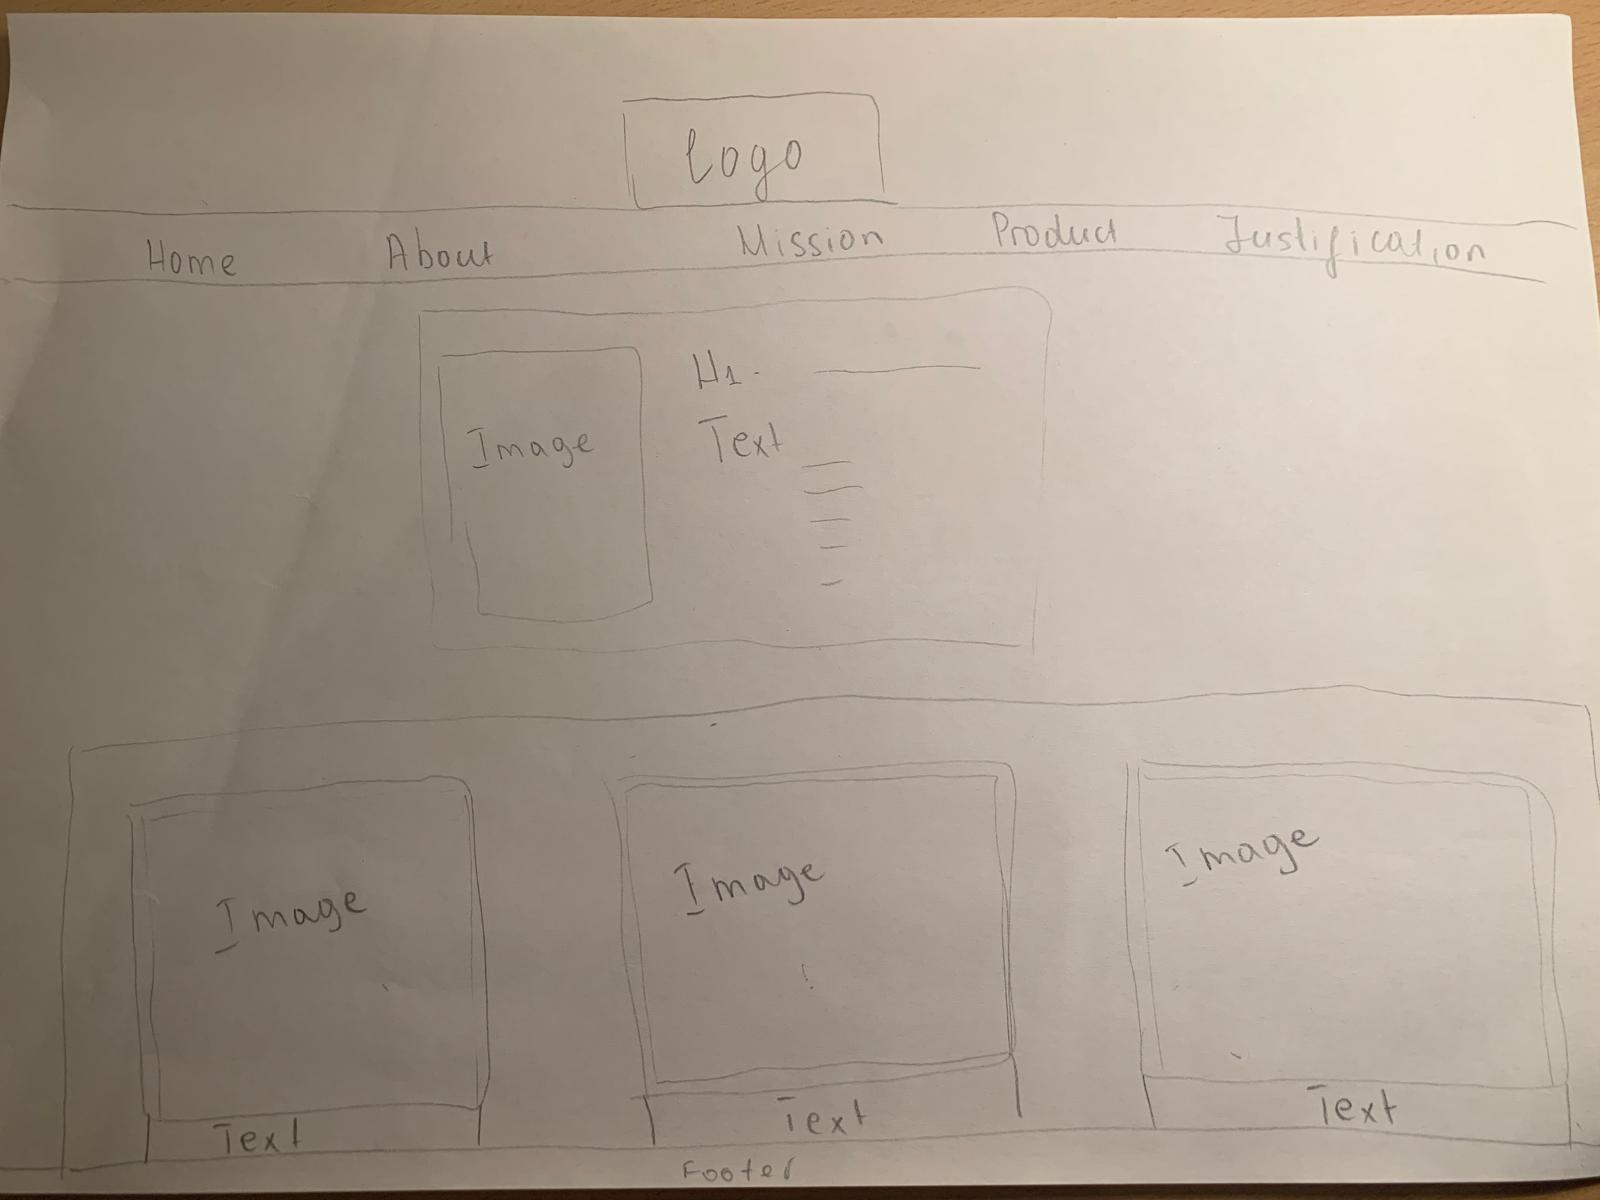 Logo
Home About Mission Product Justification
H1.
Image Text
Image Image Image
Text Text Text
Footer